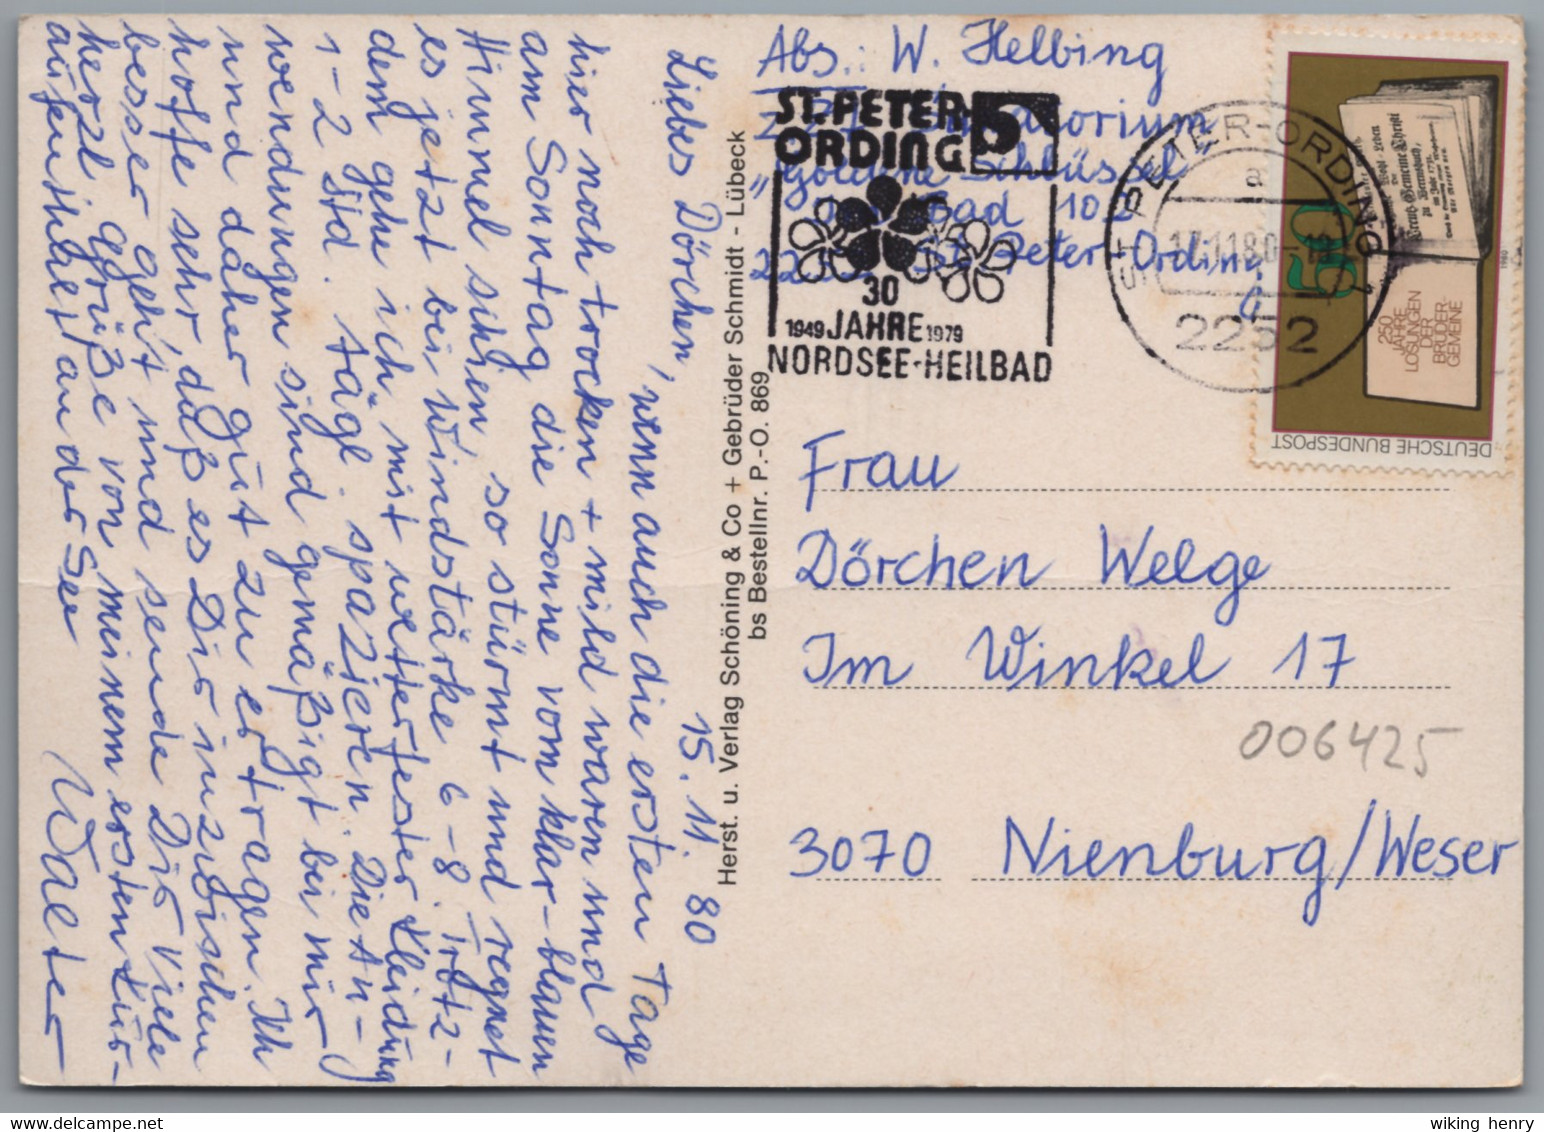 Liebes Dörchen, 15.11.80
wenn auch die ersten Tage
hier noch trocken + mild waren und
am Sonntag die Sonne vom klar-blauen
Himmel schien, so stürmt und regnet
es jetzt bei Windstärke 6-8. Trotz-
dem gehe ich mit wetterfester Kleidung
1-2 Std. tägl. spazieren. Die An-
wendungen sind gemäßigt bei mir
und daher gut zu ertragen. Ich
hoffe sehr, daß es Dir inzwischen
besser geht und sende Dir viele
herzl. Grüße von meinem ersten Kur-
aufenthalt an der See
Walter
Herst. u. Verlag Schöning & Co + Gebrüder Schmidt - Lübeck
bs Bestellnr. P.-O. 869
Abs.: W. Helbing
"Goldene Schlüssel"
Bad 102
St. Peter-Ording
ST. PETER-
ORDING
5
30
1949 JAHRE 1979
NORDSEE-HEILBAD
ST. PETER-ORDING 1
a
17.11.80-
2252
50
250
JAHRE
LOSUNGEN
DER
BRÜDER-
GEMEINE
1980
DEUTSCHE BUNDESPOST
Frau
Dörchen Welge
Im Winkel 17
006425
3070 Nienburg/Weser
wiking henry